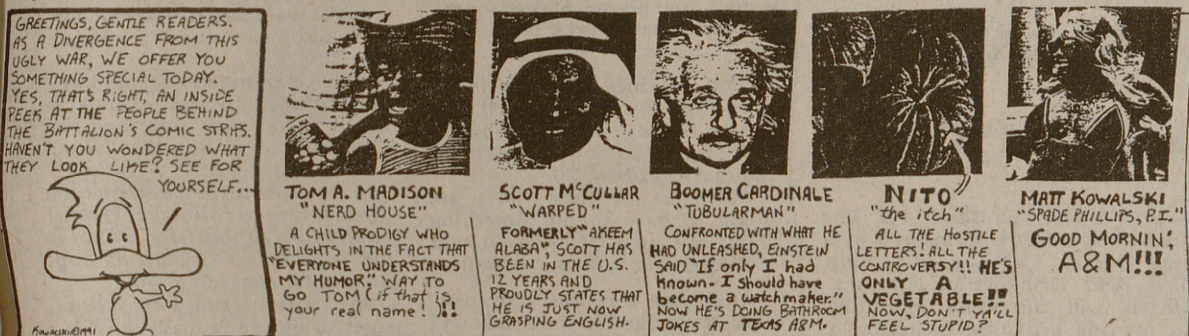 GREETINGS, GENTLE READERS.
AS A DIVERGENCE FROM THIS
UGLY WAR, WE OFFER YOU
SOMETHING SPECIAL TODAY.
YES, THAT'S RIGHT, AN INSIDE
PEEK AT THE PEOPLE BEHIND
THE BATTALION'S COMIC STRIPS.
HAVEN'T YOU WONDERED WHAT
THEY LOOK LIKE? SEE FOR
YOURSELF...
KOWALSKI©1991
TOM A. MADISON
"NERD HOUSE"
A CHILD PRODIGY WHO
DELIGHTS IN THE FACT THAT
"EVERYONE UNDERSTANDS
MY HUMOR." WAY TO
GO TOM (if that is
your real name!)!!
SCOTT McCULLAR
"WARPED"
FORMERLY "AKEEM
ALABA", SCOTT HAS
BEEN IN THE U.S.
12 YEARS AND
PROUDLY STATES THAT
HE IS JUST NOW
GRASPING ENGLISH.
BOOMER CARDINALE
"TUBULARMAN"
CONFRONTED WITH WHAT HE
HAD UNLEASHED, EINSTEIN
SAID "If only I had
known. I should have
become a watchmaker."
NOW HE'S DOING BATHROOM
JOKES AT TEXAS A&M.
NITO
"the itch"
ALL THE HOSTILE
LETTERS! ALL THE
CONTROVERSY!! HE'S
ONLY A
VEGETABLE!!
NOW, DON'T YA'LL
FEEL STUPID?
MATT KOWALSKI
"SPADE PHILLIPS, P.I."
GOOD MORNIN',
A&M!!!